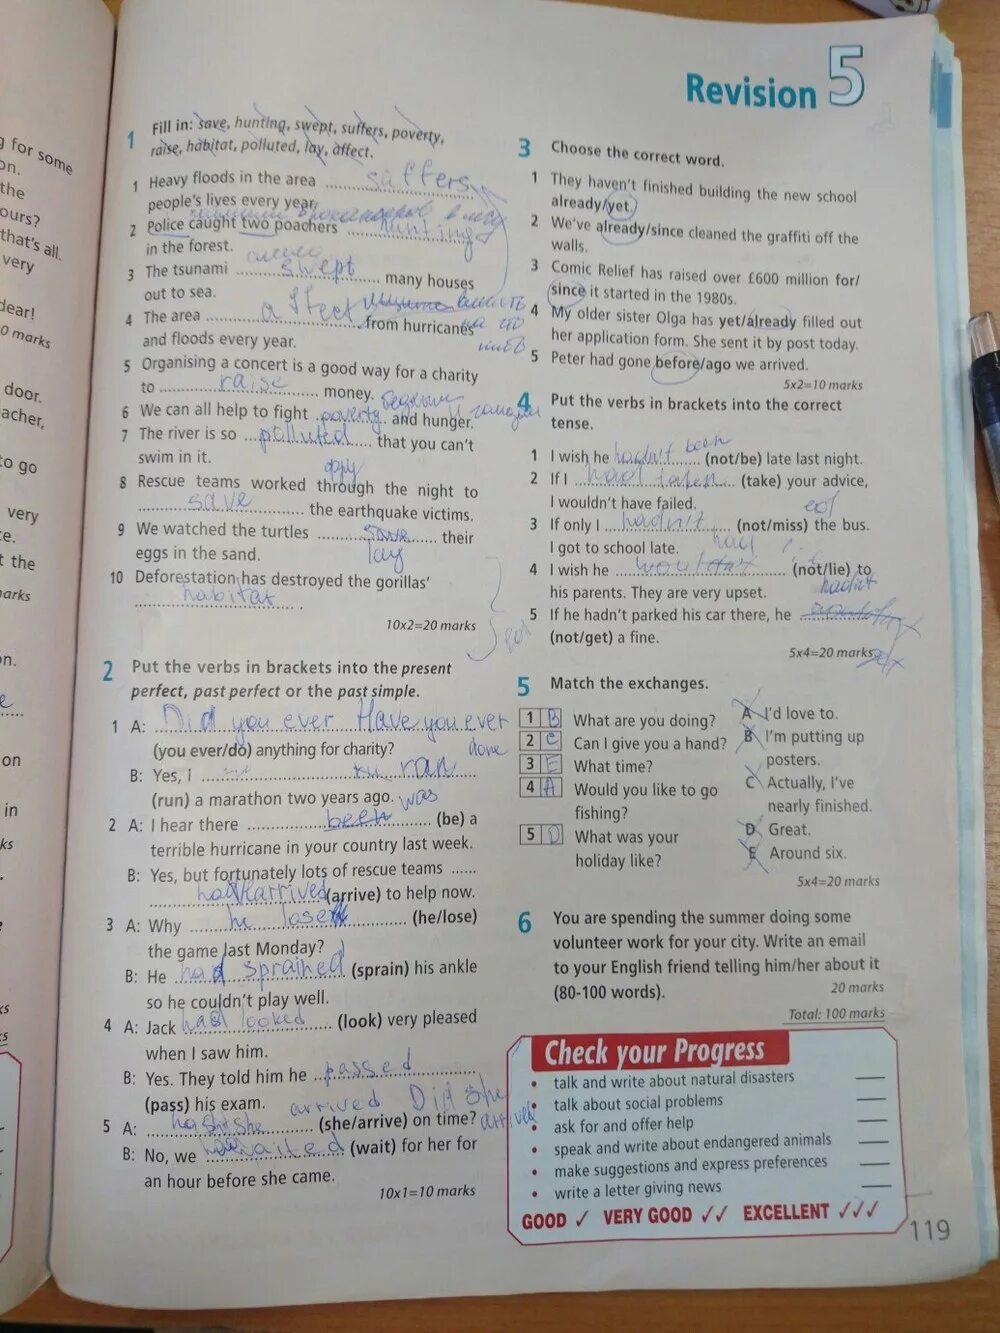 g for some
on.
the
ours?
that's all.
very
dear!
0 marks
door.
acher,
to go
very
te.
t the
narks
on.
on
in
ks
Revision 5
1 Fill in: save, hunting, swept, suffers, poverty,
raise, habitat, polluted, lay, affect.
1 Heavy floods in the area saffers
people's lives every year.
2 Police caught two poachers hunting
in the forest.
3 The tsunami swept many houses
out to sea.
4 The area affect from hurricanes
and floods every year.
5 Organising a concert is a good way for a charity
to raise money.
6 We can all help to fight poverty and hunger.
7 The river is so polluted that you can't
swim in it.
8 Rescue teams worked through the night to
save the earthquake victims.
9 We watched the turtles save their
eggs in the sand. lay
10 Deforestation has destroyed the gorillas'
habitat .
10x2=20 marks
2 Put the verbs in brackets into the present
perfect, past perfect or the past simple.
1 A: Did you ever Have you ever
(you ever/do) anything for charity? done
B: Yes, I ran
(run) a marathon two years ago. was
2 A: I hear there been (be) a
terrible hurricane in your country last week.
B: Yes, but fortunately lots of rescue teams
arrived (arrive) to help now.
3 A: Why he lose (he/lose)
the game last Monday?
B: He had sprained (sprain) his ankle
so he couldn't play well.
4 A: Jack looked (look) very pleased
when I saw him.
B: Yes. They told him he passed
(pass) his exam. arrived Did she
5 A: she (she/arrive) on time? arrived
B: No, we waited (wait) for her for
an hour before she came.
10x1=10 marks
3 Choose the correct word.
1 They haven't finished building the new school
already/yet.
2 We've already/since cleaned the graffiti off the
walls.
3 Comic Relief has raised over £600 million for/
since it started in the 1980s.
4 My older sister Olga has yet/already filled out
her application form. She sent it by post today.
5 Peter had gone before/ago we arrived.
5x2=10 marks
4 Put the verbs in brackets into the correct
tense.
1 I wish he hadn't been (not/be) late last night.
2 If I had taken (take) your advice,
I wouldn't have failed.
3 If only I hadn't (not/miss) the bus.
I got to school late. had
4 I wish he (not/lie) to
his parents. They are very upset. hadn't
5 If he hadn't parked his car there, he
(not/get) a fine.
5x4=20 marks
5 Match the exchanges.
1 B What are you doing?
2 C Can I give you a hand?
3 E What time?
4 A Would you like to go
fishing?
5 D What was your
holiday like?
A I'd love to.
B I'm putting up
posters.
C Actually, I've
nearly finished.
D Great.
E Around six.
5x4=20 marks
6 You are spending the summer doing some
volunteer work for your city. Write an email
to your English friend telling him/her about it
(80-100 words).
20 marks
Total: 100 marks
Check your Progress
• talk and write about natural disasters
• talk about social problems
• ask for and offer help
• speak and write about endangered animals
• make suggestions and express preferences
• write a letter giving news
GOOD ✓ VERY GOOD ✓✓ EXCELLENT ✓✓✓
119